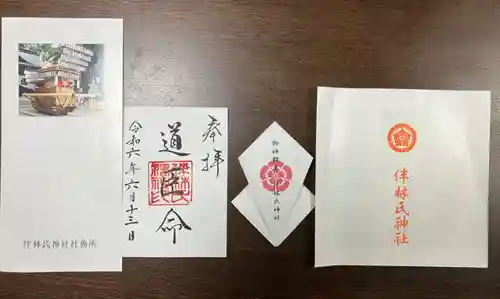 伴林氏神社社務所
奉拝
道臣命
令和六年六月十三日
伴林氏神社
伴林氏神社